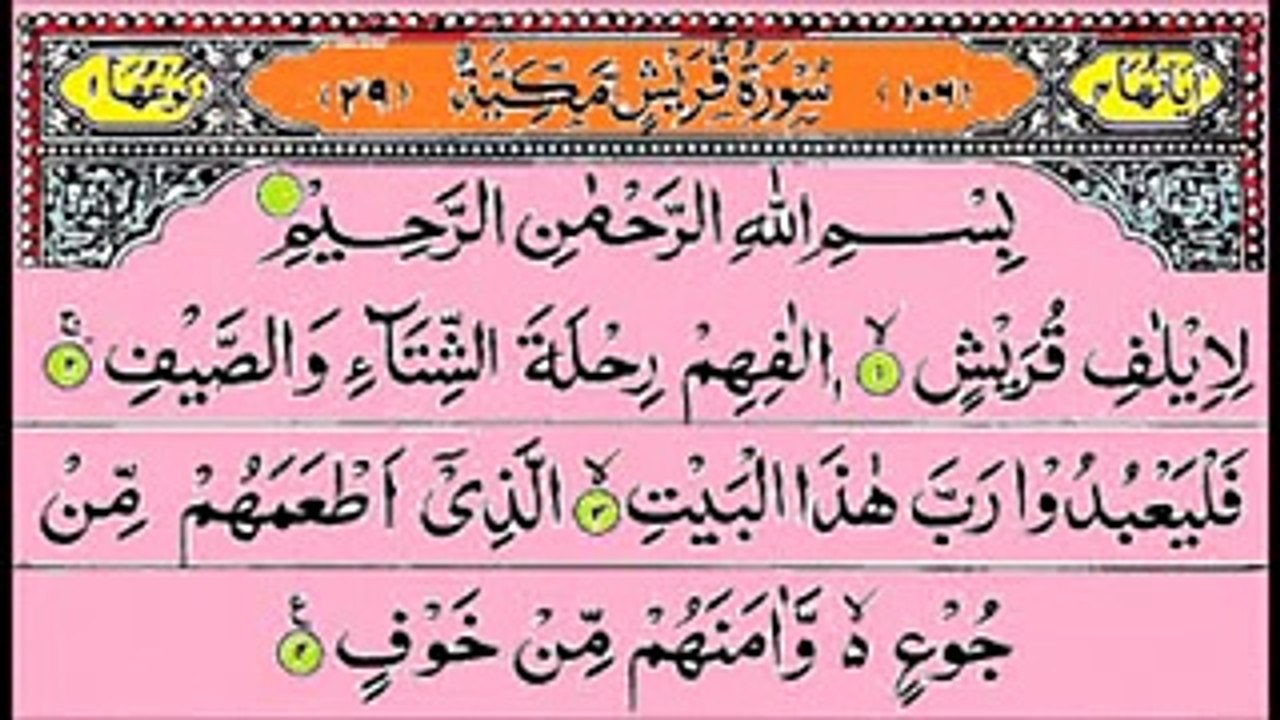 اٰيَاتُهَا ٤ (١٠٦) سُوْرَةُ قُرَيْشٍ مَكِّيَّةٌ (٢٩) رُكُوْعُهَا ١
بِسْمِ اللهِ الرَّحْمٰنِ الرَّحِيْمِ
لِاِيْلٰفِ قُرَيْشٍ ۙ‏ ١ اٖلٰفِهِمْ رِحْلَةَ الشِّتَآءِ وَالصَّيْفِ ۚ‏ ٢
فَلْيَعْبُدُوْا رَبَّ هٰذَا الْبَيْتِ ۙ‏ ٣ الَّذِىْۤ اَطْعَمَهُمْ مِّنْ
جُوْعٍ ۙ۬ وَّاٰمَنَهُمْ مِّنْ خَوْفٍ ٤ ع